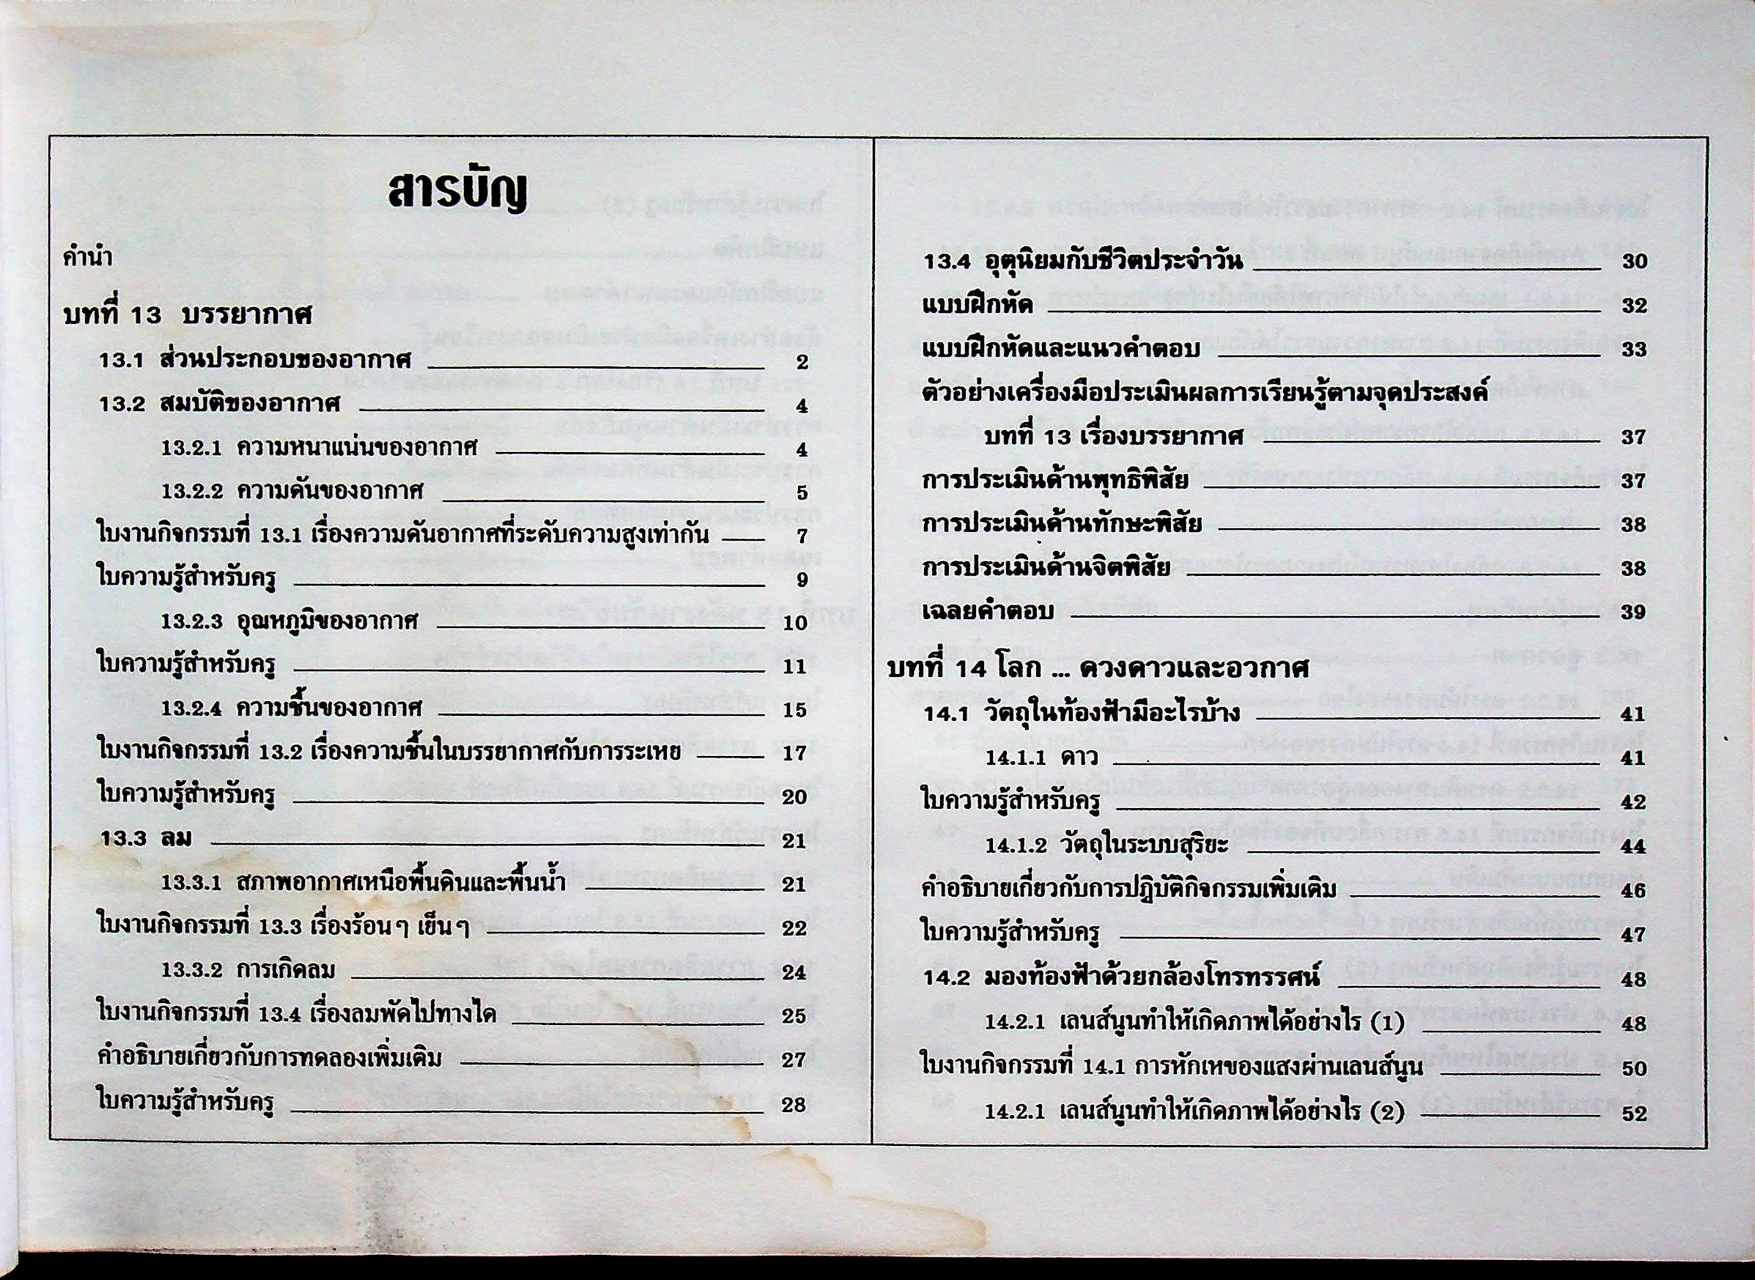 สารบัญ
คำนำ
บทที่ 13 บรรยากาศ
13.1 ส่วนประกอบของอากาศ 2
13.2 สมบัติของอากาศ 4
13.2.1 ความหนาแน่นของอากาศ 4
13.2.2 ความดันของอากาศ 5
ใบงานกิจกรรมที่ 13.1 เรื่องความดันอากาศที่ระดับความสูงเท่ากัน 7
ใบความรู้สำหรับครู 9
13.2.3 อุณหภูมิของอากาศ 10
ใบความรู้สำหรับครู 11
13.2.4 ความชื้นของอากาศ 15
ใบงานกิจกรรมที่ 13.2 เรื่องความชื้นในบรรยากาศกับการระเหย 17
ใบความรู้สำหรับครู 20
13.3 ลม 21
13.3.1 สภาพอากาศเหนือพื้นดินและพื้นน้ำ 21
ใบงานกิจกรรมที่ 13.3 เรื่องร้อนๆ เย็นๆ 22
13.3.2 การเกิดลม 24
ใบงานกิจกรรมที่ 13.4 เรื่องลมพัดไปทางใด 25
คำอธิบายเกี่ยวกับการทดลองเพิ่มเติม 27
ใบความรู้สำหรับครู 28
13.4 อุตุนิยมกับชีวิตประจำวัน 30
แบบฝึกหัด 32
แบบฝึกหัดและแนวคำตอบ 33
ตัวอย่างเครื่องมือประเมินผลการเรียนรู้ตามจุดประสงค์
บทที่ 13 เรื่องบรรยากาศ 37
การประเมินด้านพุทธิพิสัย 37
การประเมินด้านทักษะพิสัย 38
การประเมินด้านจิตพิสัย 38
เฉลยคำตอบ 39
บทที่ 14 โลก ... ดวงดาวและอวกาศ
14.1 วัตถุในท้องฟ้ามีอะไรบ้าง 41
14.1.1 ดาว 41
ใบความรู้สำหรับครู 42
14.1.2 วัตถุในระบบสุริยะ 44
คำอธิบายเกี่ยวกับการปฏิบัติกิจกรรมเพิ่มเติม 46
ใบความรู้สำหรับครู 47
14.2 มองท้องฟ้าด้วยกล้องโทรทรรศน์ 48
14.2.1 เลนส์นูนทำให้เกิดภาพได้อย่างไร (1) 48
ใบงานกิจกรรมที่ 14.1 การหักเหของแสงผ่านเลนส์นูน 50
14.2.1 เลนส์นูนทำให้เกิดภาพได้อย่างไร (2) 52